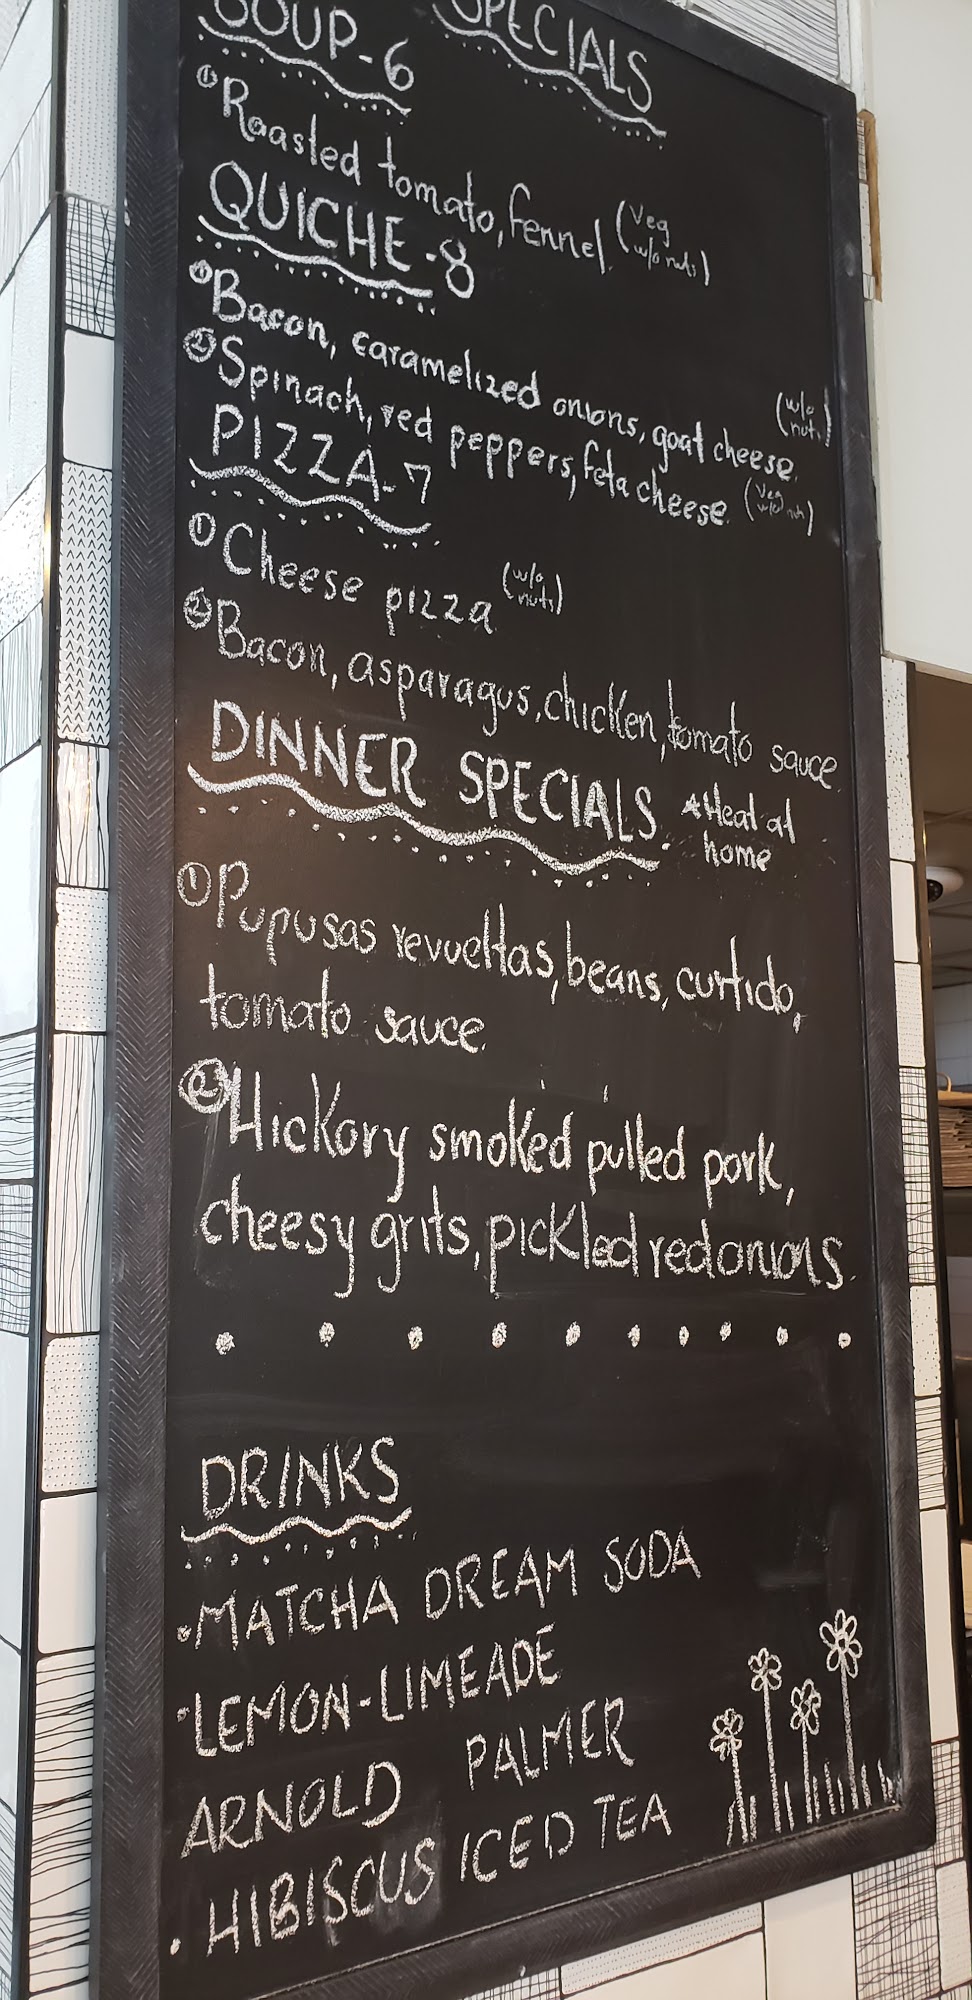 SOUP-6 SPECIALS
① Roasted tomato, fennel. (Veg w/o nuts)
QUICHE-8
① Bacon, caramelized onions, goat cheese. (w/o nuts)
② Spinach, red peppers, feta cheese. (Veg w/o nuts)
PIZZA-7
① Cheese pizza (w/o nuts)
② Bacon, asparagus, chicken, tomato sauce
DINNER SPECIALS. *Heat at
home
① Pupusas revueltas, beans, curtido,
tomato sauce.
② Hickory smoked pulled pork,
cheesy grits, pickled red onions.
DRINKS
•MATCHA DREAM SODA
•LEMON-LIMEADE
ARNOLD PALMER
•HIBISCUS ICED TEA